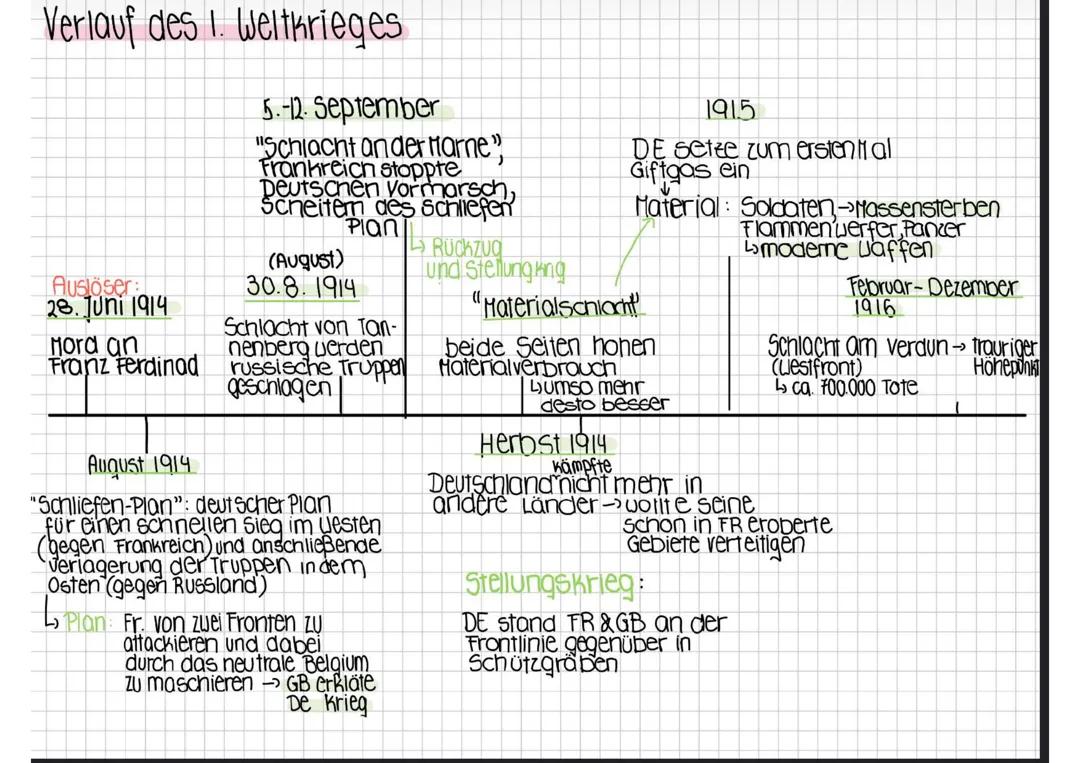 Verlauf des 1. Weltkrieges
5.-12. September
"Schlacht an der Marne",
Frankreich stoppte
Deutschen Vormarsch,
Scheitern des Schliefen
Plan
↳ Rückzug
und Stellungkrig
1915
DE setze zum ersten Mal
Giftgas ein
↓
Material: Soldaten, → Massensterben
Flammenwerfer, Panzer
↳ moderne Waffen
Auslöser:
28. Juni 1914
Mord an
Franz Ferdinad
(August)
30.8. 1914
Schlacht von Tan-
nenberg werden
russische Truppen
geschlagen
"Materialschlacht"
beide Seiten hohen
Materialverbrouch
↳ umso mehr
desto besser
Februar - Dezember
1916
Schlacht am Verdun → trauriger
(Westfront) Höhepunkt
↳ ca. 700.000 Tote
August 1914
"Schliefen-Plan": deutscher Plan
für einen schnellen Sieg im Westen
(gegen Frankreich) und anschließende
Verlagerung der Truppen in dem
Osten (gegen Russland)
↳ Plan: Fr. von zwei Fronten zu
attackieren und dabei
durch das neutrale Belgium
zu maschieren → GB erkläte
De Krieg
Herbst 1914
kämpfte
Deutschland nicht mehr in
andere Länder → wollte seine
schon in FR eroberte
Gebiete verteitigen
Stellungskrieg:
DE stand FR & GB an der
Frontlinie gegenüber in
Schützgräben